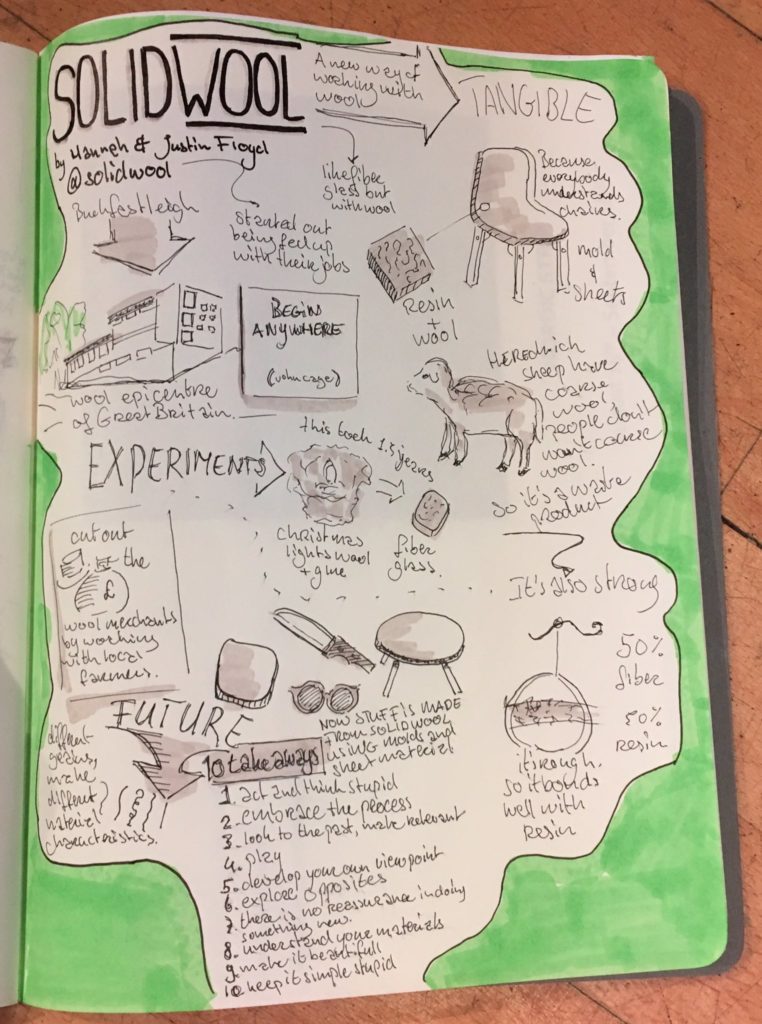 SOLIDWOOL
by Hanneh & Justin Floyd
@solidwool
A new way of
working with
wool
TANGIBLE
like fiber
glass but
with wool
Because
everybody
understands
chaires.
mold
&
sheets
Buckfastleigh
started out
being fed up
with their jobs
Resin
+
wool
BEGIN
ANYWHERE
(John Cage)
wool epicentre
of Great Britain.
sheep have
coarse
wool
people don't
want coarse
wool.
so it's a waste
product
EXPERIMENTS
this took 1.5 jears
christmas
lights wool
+ glue
fiber
glass.
It's also strong
cut out
the
£
wool merchants
by working
with local
farmers.
50%
fiber
50%
resin
it's rough.
so it bonds
well with
resin
FUTURE
NOW STUFF IS MADE
FROM SOLIDWOOL
USING MOLDS and
sheet material
different
make
different
material
characteristics.
10 take aways
1. act and think stupid
2. embrace the process
3. look to the past, make relevant
4. play
5. develop your own viewpoint
6. explore opposites
7. there is no reassurance in doing
something new.
8. understand your materials
9. make it beautifull
10. keep it simple stupid